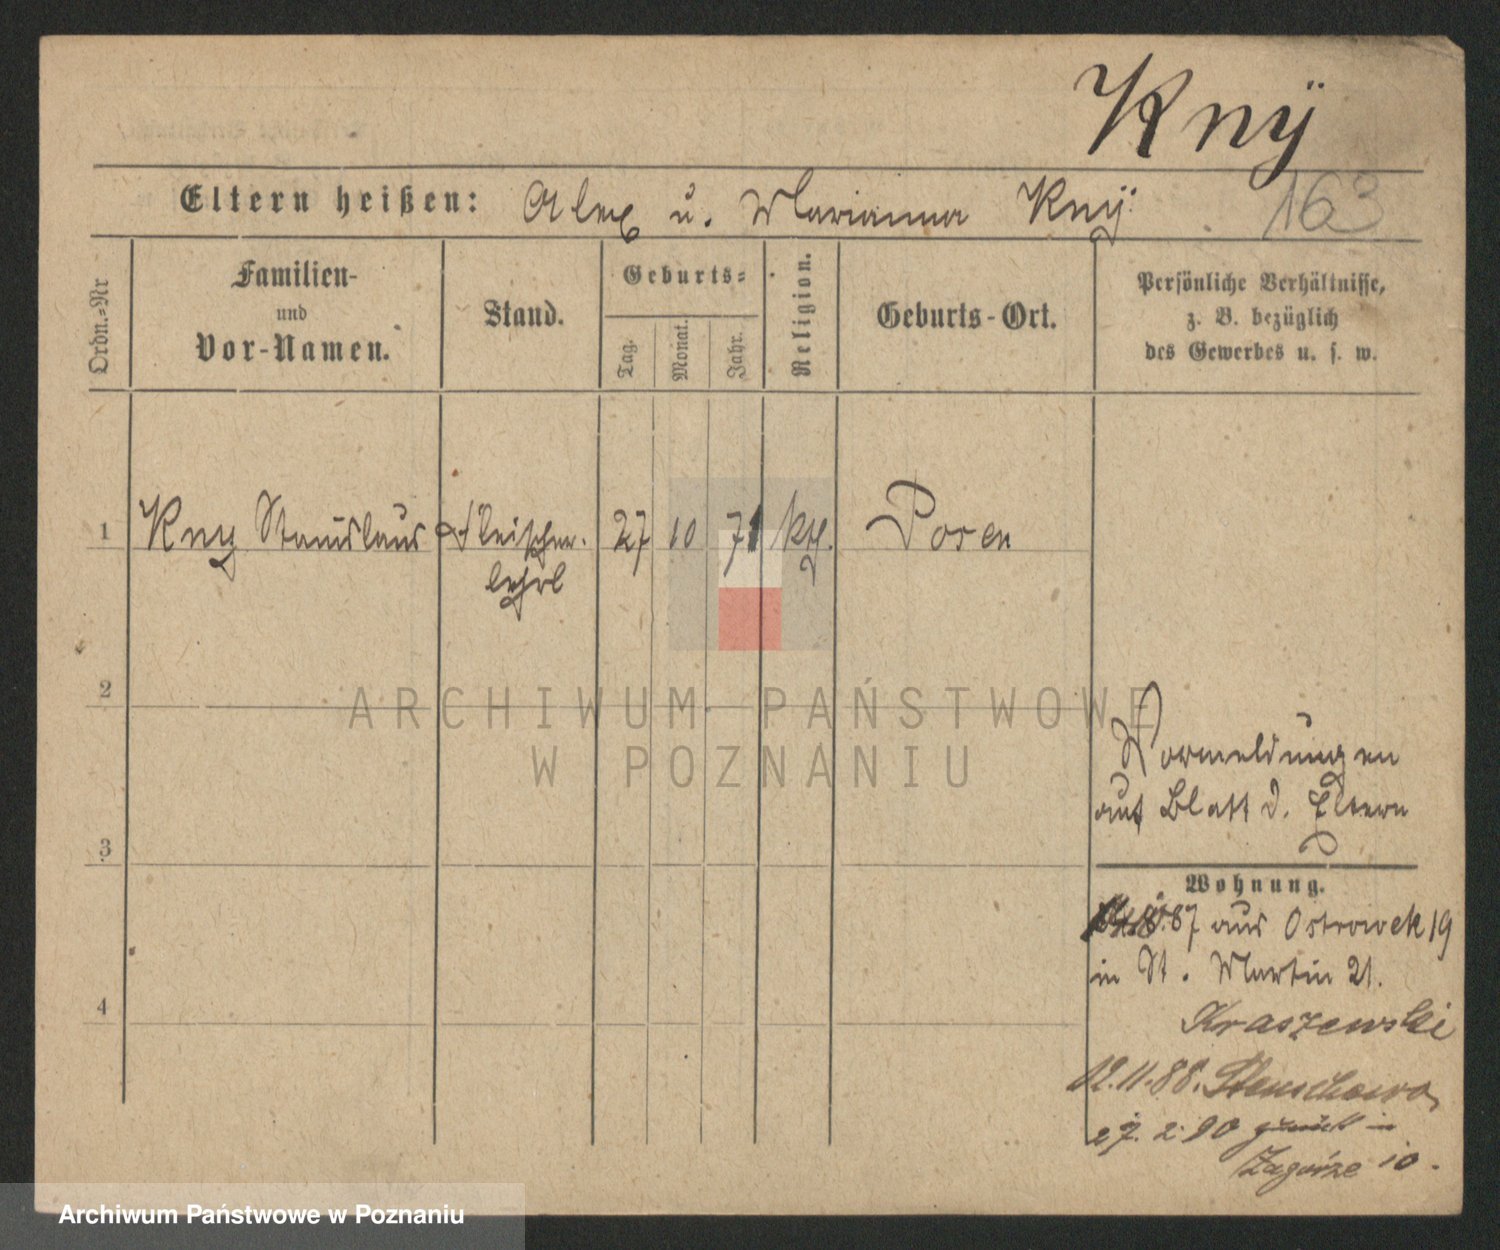 Knÿ
Eltern heißen: Alex u. Marianna Knÿ 163
Ordn.=Nr
Familien-
und
Vor-Namen.
Stand.
Geburts=
Tag.
Monat.
Jahr.
Religion.
Geburts-Ort.
Persönliche Verhältnisse,
z. B. bezüglich
des Gewerbes u. s. w.
1 Kny Stanislaus Fleischer- 27 10 71 kth. Posen
lehrl
2
ARCHIWUM PAŃSTWOWE
W POZNANIU
Vormeldungen
auf Blatt d. Eltern
3
Wohnung.
87 aus Ostrowek 19
in St. Martin 21.
Kraszewski
4
12.11.88.
27. 2. 90 zurück in
Zagórze 10.
Archiwum Państwowe w Poznaniu